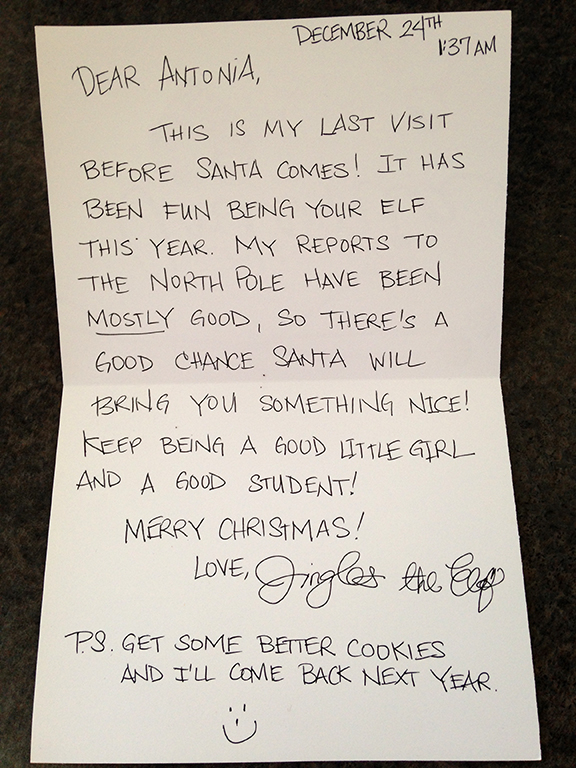 DECEMBER 24TH
1:37AM
DEAR ANTONIA,
THIS IS MY LAST VISIT
BEFORE SANTA COMES! IT HAS
BEEN FUN BEING YOUR ELF
THIS YEAR. MY REPORTS TO
THE NORTH POLE HAVE BEEN
MOSTLY GOOD, SO THERE'S A
GOOD CHANCE SANTA WILL
BRING YOU SOMETHING NICE!
KEEP BEING A GOOD LITTLE GIRL
AND A GOOD STUDENT!
MERRY CHRISTMAS!
LOVE, Jingles the Elf
P.S. GET SOME BETTER COOKIES
AND I'LL COME BACK NEXT YEAR.